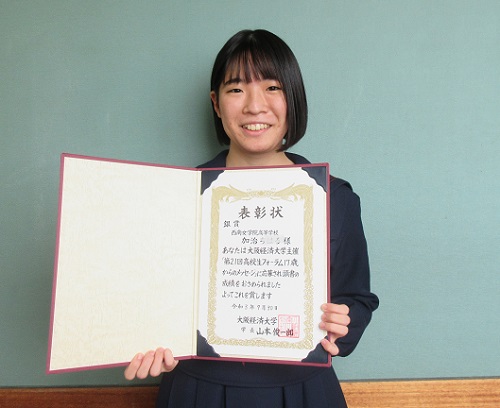 表彰状
銀賞
西南女学院高等学校
加治 様
あなたは大阪経済大学主催
「第21回高校生フォーラム17歳
からのメッセージ」に応募され頭書の
成績をおさめられました
よってこれを賞します
大阪経済大学
学長 山本俊一郎